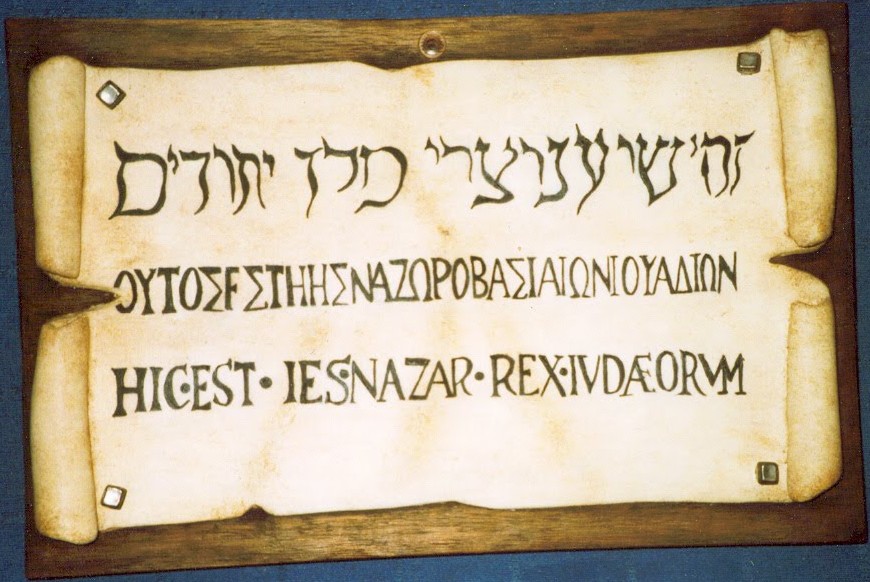 זה ישוענוצרי מלך יהודים
ΟΥΤΟΣΕΣΤΗΗΣΝΑΖΩΡΟΒΑΣΙΑΙΩΝΙΟΥΑΔΙΩΝ
HIC·EST· IES·NAZAR·REX·IVDÆORVM